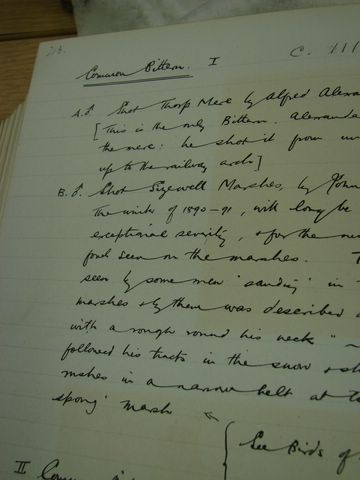 213.
Common Bittern. I C. 111
A.♂ Shot Thorpe Mere by Alfred Alexa
[This is the only Bittern. Alexande
the mere: he shot it from un
up to the railway arch]
B.♂ Shot Sizewell Marshes, by John
the winter of 1890-91, will long be
exceptional severity, & for the nu
fowl seen on the marshes. T
seen by some men "sanding" in
marshes & by them was described
with a rough round his neck" -
followed his tracts in the snow & sh
rushes in a narrow belt at t
spong' marsh
See Birds of
II Com